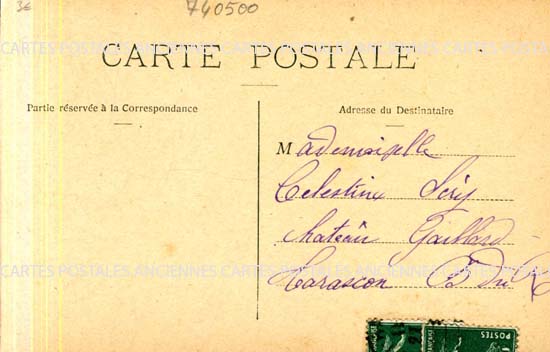 3€
740500
CARTE POSTALE
Partie réservée à la Correspondance
Adresse du Destinataire
Mademoiselle
Celestine
Château Gaillard
Tarascon B du R
CARTES POSTALES ANCIENNES CARTES POSTALES ANCIENNES
CARTES POSTALES ANCIENNES CARTES POSTALES ANCIENNES